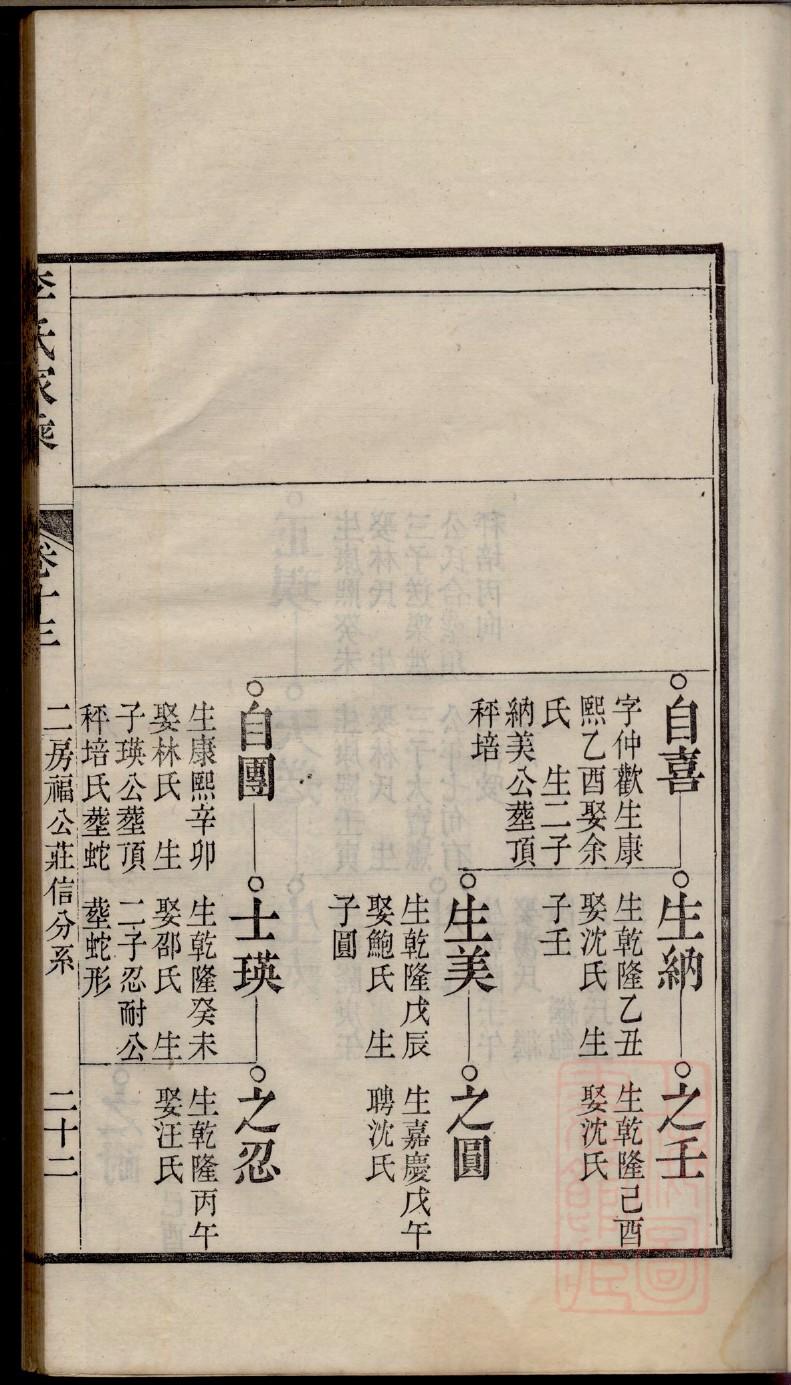 自喜
字仲歡生康
熙乙酉娶余
氏 生二子
納美公塟頂
秤培
生納
生乾隆乙丑
娶沈氏 生
子壬
之壬
生乾隆己酉
娶沈氏
生美
生乾隆戊辰
娶鮑氏 生
子圓
之圓
生嘉慶戊午
聘沈氏
自團
生康熙辛卯
娶林氏 生
子瑛公塟頂
秤培氏塟蛇
士瑛
生乾隆癸未
娶邵氏 生
二子忍耐公
塟蛇形
之忍
生乾隆丙午
娶汪氏
二房福公莊信分系 二十二
李氏家乘 卷十三